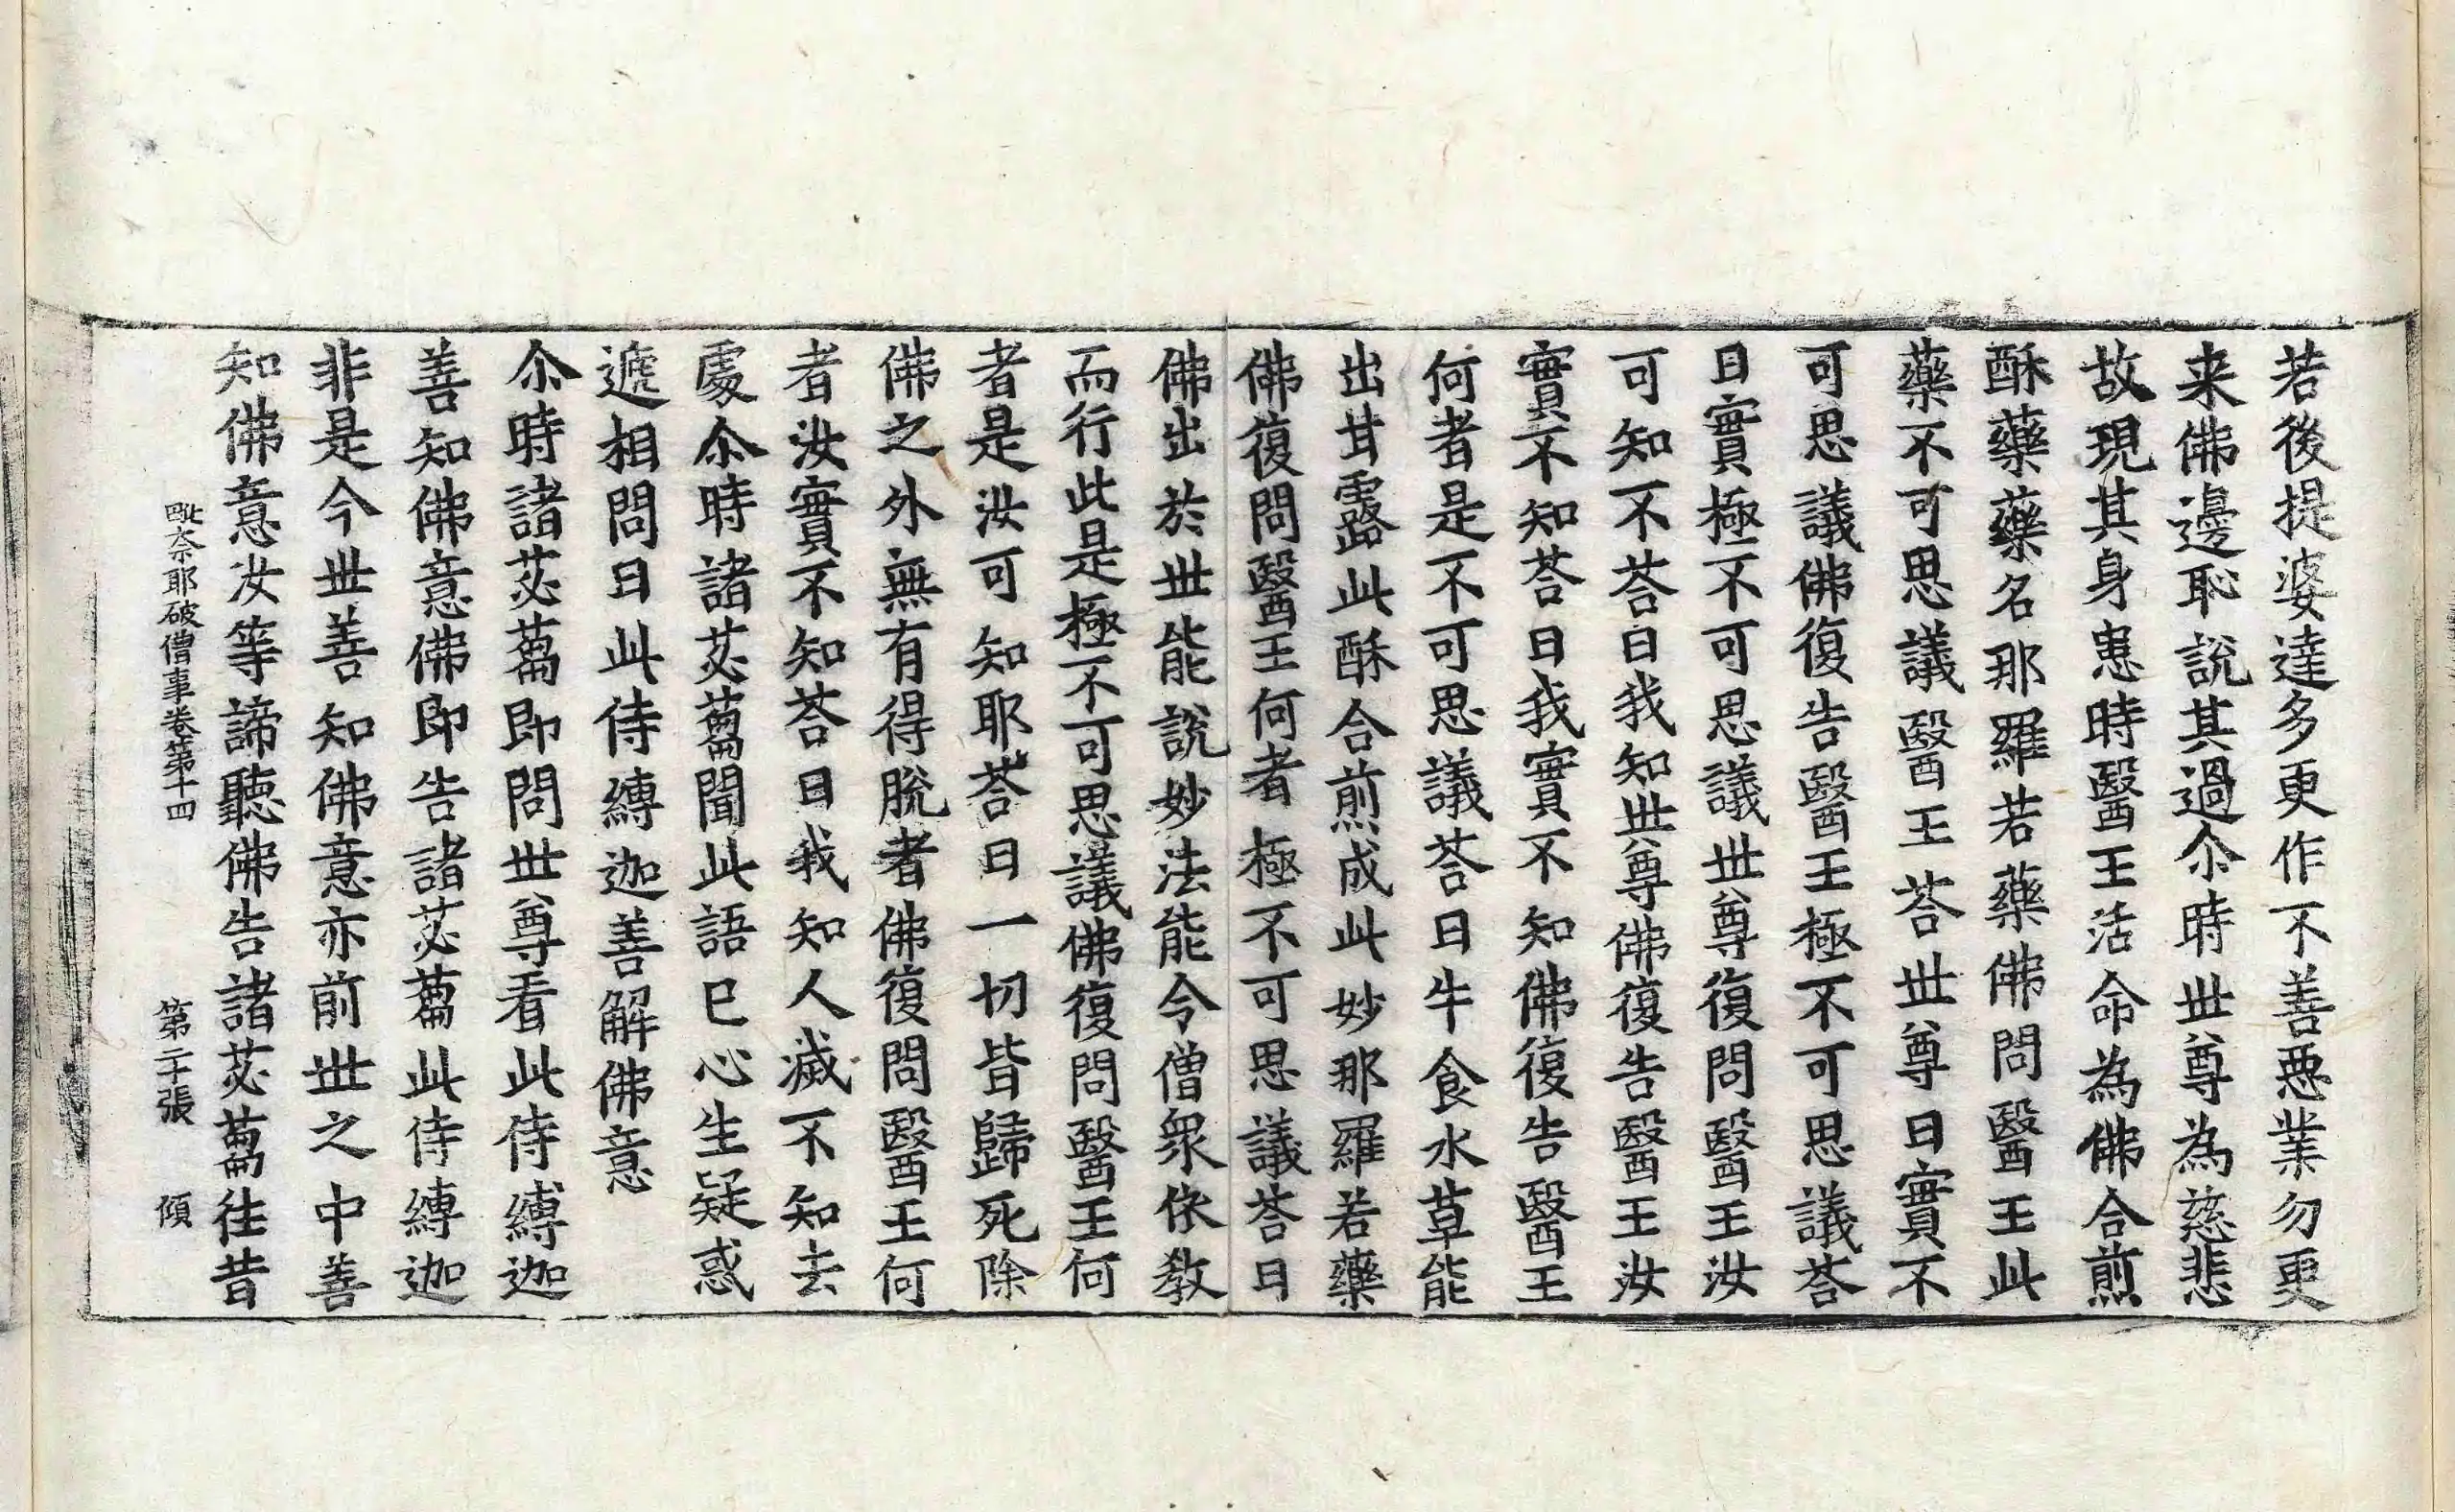 若後提婆達多更作不善惡業勿更
来佛邊恥說其過尒時世尊為慈悲
故現其身患時醫王活命為佛合煎
酥藥藥名那羅若藥佛問醫王此
藥不可思議醫王荅世尊曰實不
可思議佛復告醫王極不可思議荅
曰實極不可思議世尊復問醫王汝
可知不荅曰我知世尊佛復告醫王汝
實不知荅曰我實不知佛復告醫王
何者是不可思議荅曰牛食水草能
出甘露此酥合煎成此妙那羅若藥
佛復問醫王何者極不可思議荅曰
佛出於世能說妙法能令僧衆依教
而行此是極不可思議佛復問醫王何
者是汝可知耶荅曰一切皆歸死除
佛之外無有得脫者佛復問醫王何
者汝實不知荅曰我知人滅不知去
處尒時諸苾蒭聞此語已心生疑惑
遞相問曰此侍縛迦善解佛意
尒時諸苾蒭即問世尊看此侍縛迦
善知佛意佛即告諸苾蒭此侍縛迦
非是今世善知佛意亦前世之中善
知佛意汝等諦聽佛告諸苾蒭往昔
毗奈耶破僧事卷第十四 第二十張 傾